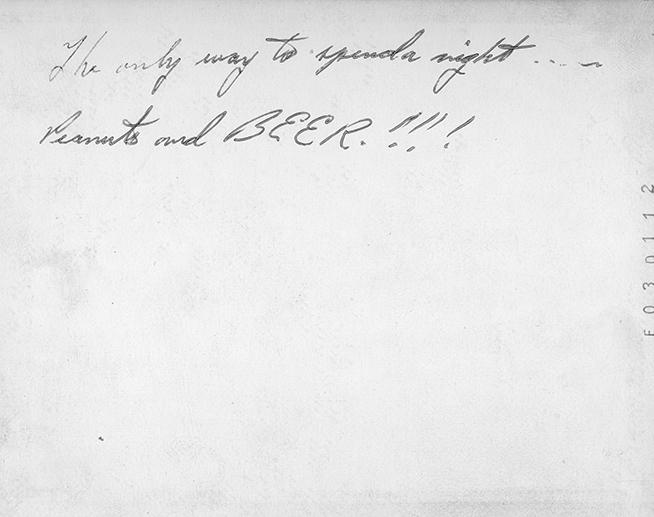 The only way to spend a night ....
Peanuts and BEER. !!!!
E030112